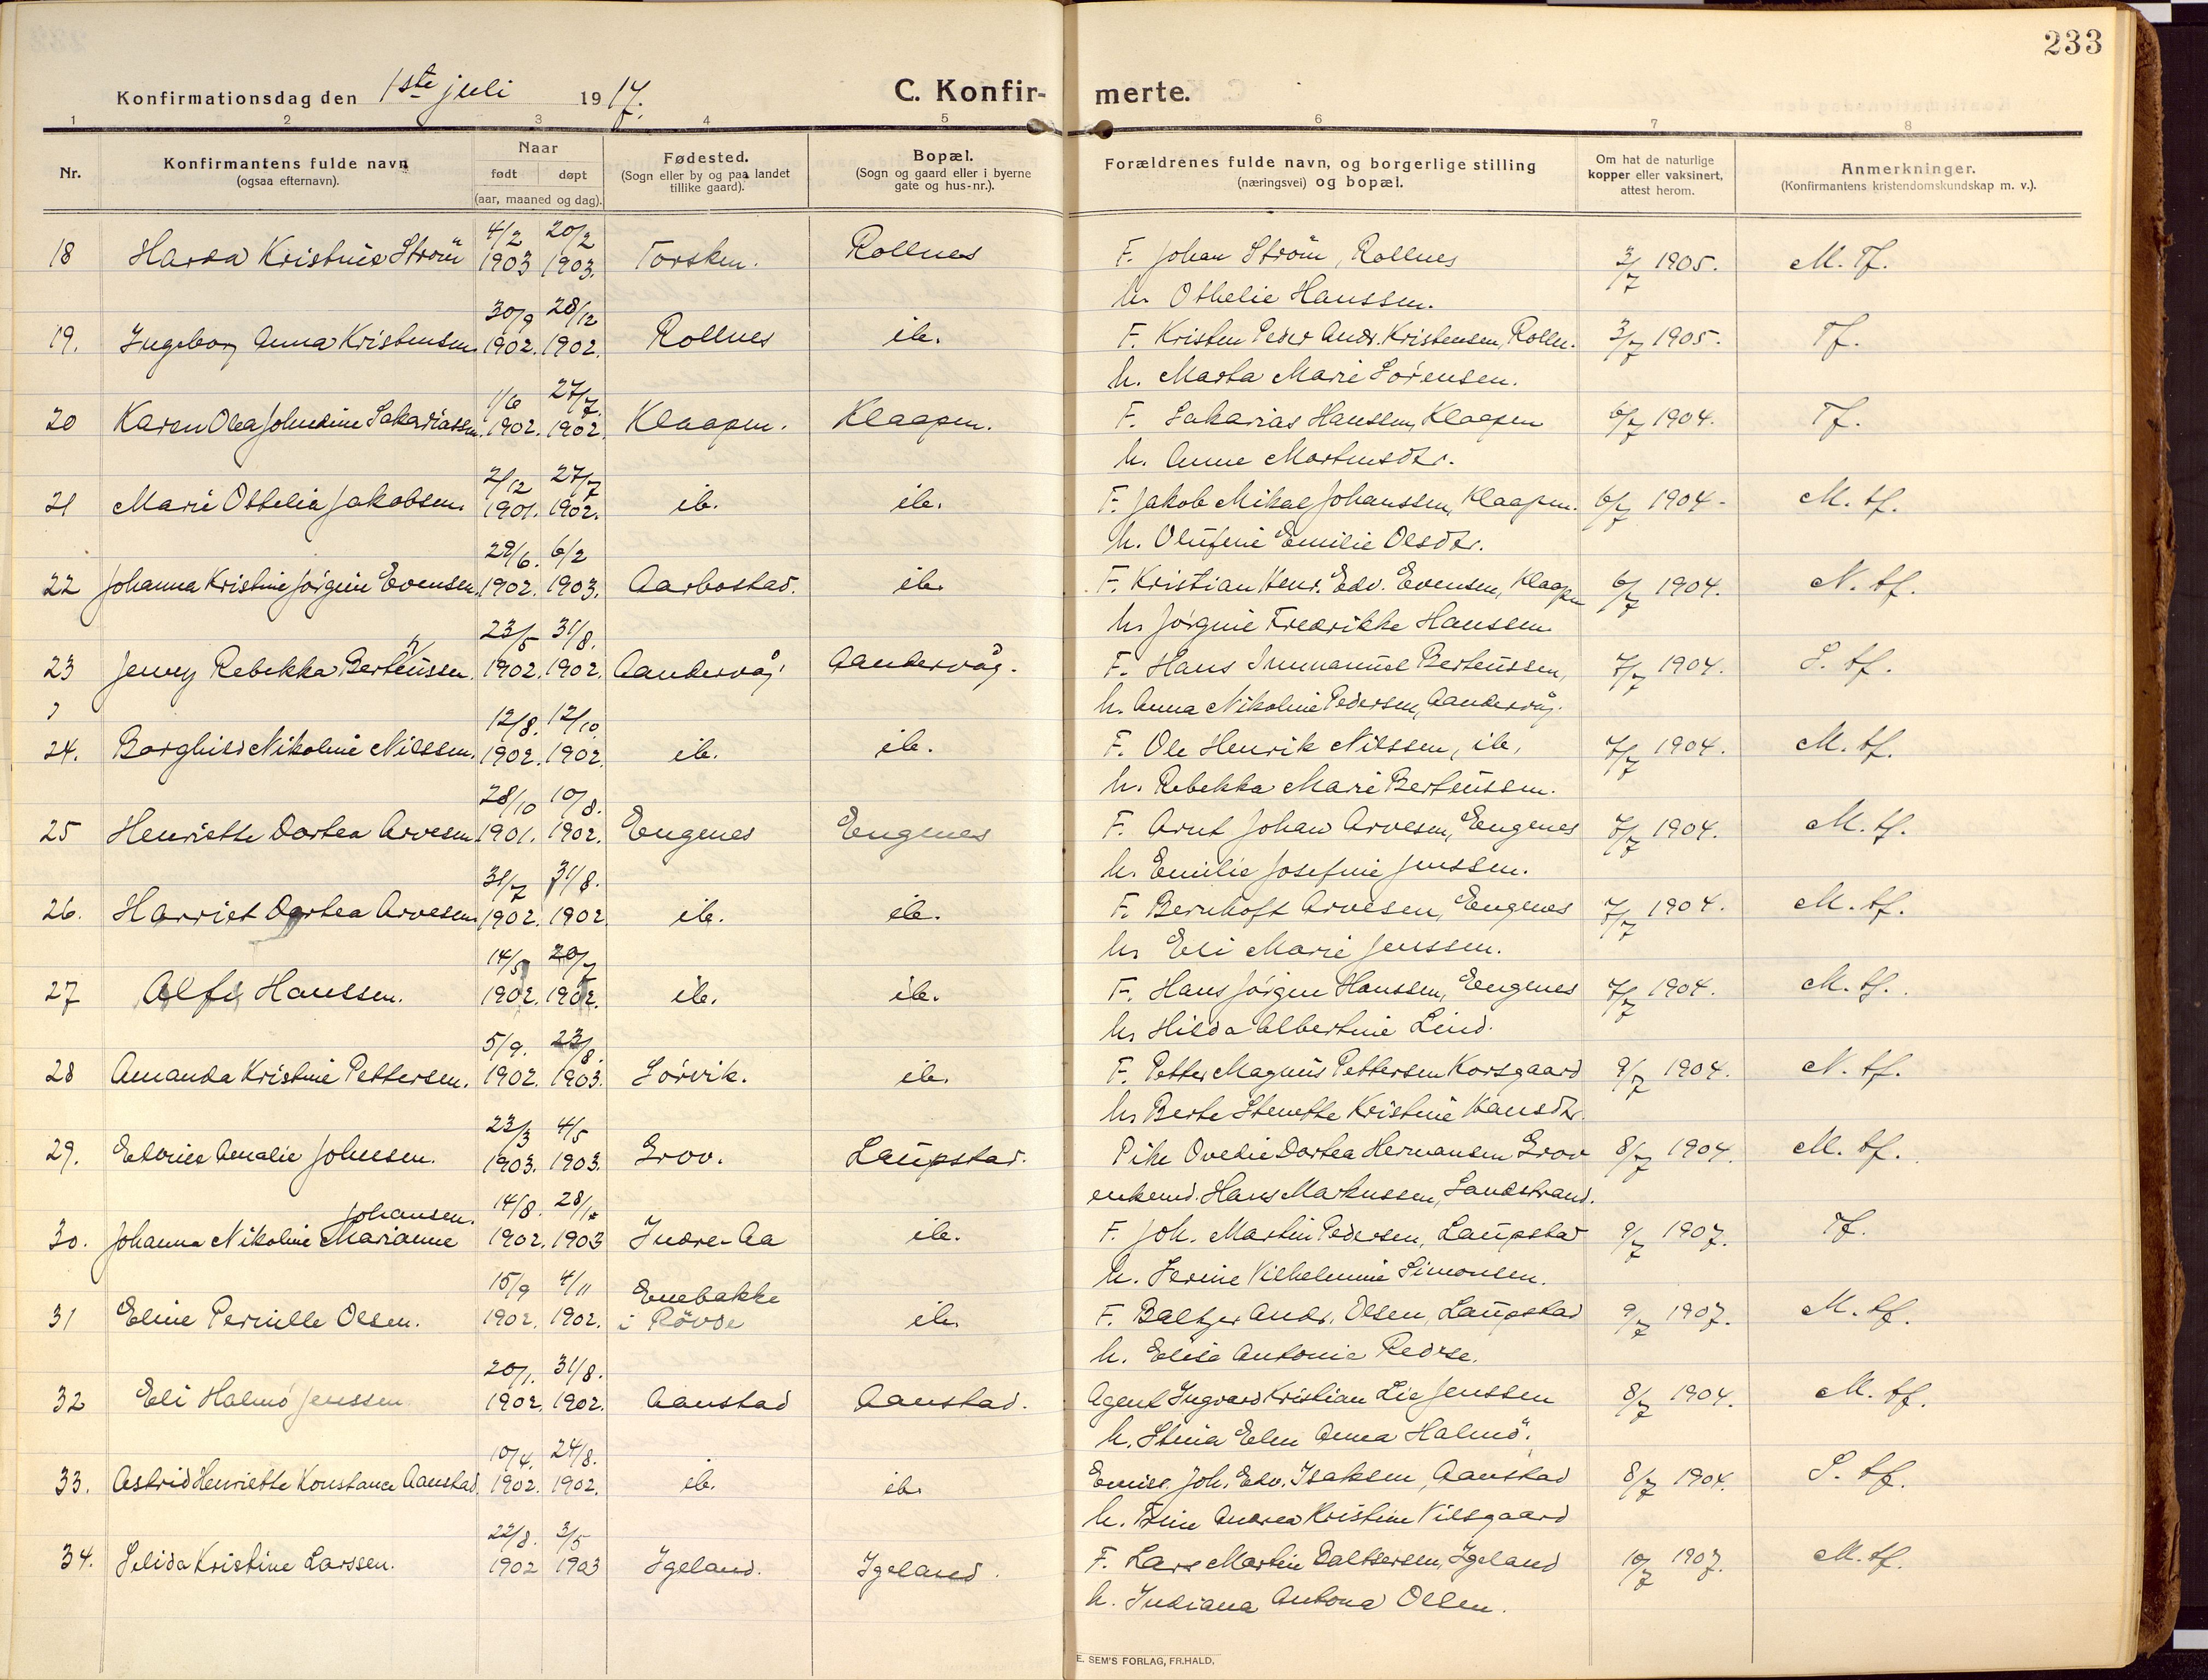 233
Konfirmationsdag den 1ste juli 1917.
C. Konfirmerte.
1 2 3 4 5 6 7 8
Nr.
Konfirmantens fulde navn
(ogsaa efternavn).
Naar
født døpt
(aar, maaned og dag).
Fødested.
(Sogn eller by og paa landet
tillike gaard).
Bopæl.
(Sogn og gaard eller i byerne
gate og hus-nr.).
Forældrenes fulde navn, og borgerlige stilling
(næringsvei) og bopæl.
Om hat de naturlige
kopper eller vaksinert,
attest herom.
Anmerkninger.
(Konfirmantens kristendomskundskap m. v.).
4/2 20/2
18 Kristine Ström 1903 1903. Torsken. Rollnes F. Johan Ström, Rollnes 3/7 1905. M. Tf.
h. Othelie Hanssen.
30/9 28/12
19. Ingeborg Anna Kristensen 1902. 1902. Rollnes ib. F. Kristen Peder Andr. Kristensen, Rolln. 3/7 1905. Tf.
h. Marta Marie Sörensen.
1/6 27/7
20 Karen Olea Johndine Sakariassen 1902. 1902. Klaapen. Klaapen. F. Sakarias Hanssen, Klaapen 6/7 1904. Tf.
h. Anne Martinsdtr.
2/12 27/7
21 Marie Othelia Jakobsen. 1901. 1902. ib. ib. F. Jakob Mikal Johanssen, Klaapen. 6/7 1904 - M. tf.
h. Olufine Emilie Olsdtr.
29/6. 6/2
22 Johanna Kristine Jörgine Evensen. 1902. 1903. Aarbostad. ib. F. Kristian Henr. Edv. Evensen, Klaapen 6/7 1904. N. tf.
h. Jörgine Fredrikke Hanssen
23/5 31/8.
23 Jenny Rebekka Berteussen. 1902. 1902. Aandervåg. Aandervåg. F. Hans Immanuel Berteussen, 7/7 1904. S. tf.
h. Anna Nikoline Pedersen, Aandervåg.
12/8. 12/10.
24. Borghild Nikoline Nilssen. 1902. 1902. ib. ib. F. Ole Henrik Nilssen, ib, 7/7 1904. M. tf.
h. Rebekka Marie Berteussen.
28/10 10/8.
25 Henriette Dortea Arvesen 1901. 1902. Engenes Engenes F. Arnt Johan Arvesen, Engenes 7/7 1904. M. tf.
h. Emilie Josefine Jenssen.
31/7 31/8.
26. Harriet Dortea Arvesen 1902. 1902. ib. ib. F. Bernhoft Arvesen, Engenes 7/7 1904. M. tf.
h. Eli Marie Jenssen.
14/5 20/7
27 Hanssen. 1902. 1902. ib. ib. F. Hans Jörgen Hanssen, Engenes 7/7 1904. M. tf.
h. Hilda Albertine Lind.
5/9. 23/8.
28 Amanda Kristine Pettersen. 1902. 1903. Sörvik. ib. F. Petter Magnus Pettersen Korsgaard 9/7 1904. N. tf.
h. Berte Stenette Kristine Hansdtr.
23/3 4/5
29. Amalie Johnsen. 1903. 1903. Grov. Laupstad. Pike Ovedie Dortea Hermansen Grov 8/7 1904. M. tf.
enkemd. Hans Markussen, Sandstrand.
Johansen. 14/8. 28/1
30. Johanna Nikoline Marianne 1902. 1903 Indre-Aa ib. F. Joh. Martin Pedersen, Laupstad 9/7 1907. Tf.
h. Serine Vilhelmine Simonsen.
15/9 4/11
31 Eline Pernille Olsen. 1902. 1902. Enebakke i Rövde ib. F. Baltzer Andr. Olsen, Laupstad 9/7 1907. M. tf.
h. Elise Antonie
20/1. 31/8.
32 Eli Halmö Jenssen 1902. 1902. Aanstad Aanstad. Agent Ingvard Kristian Lie Jenssen 8/7 1904. M. tf.
h. Stina Elen Anna Halmö.
10/4. 24/8.
33. Astrid Henriette Konstance Aanstad. 1902. 1902. ib. ib. Emiss. Joh. Edv. Isaksen, Aanstad 8/7 1904. S. tf.
h. Andrea Kristine Vilsgaard
22/8. 3/5
34. Selida Kristine Larssen. 1902 1903 Igeland. Igeland. F. Lars Martin Baltsersen, Igeland 10/7 1907. M. tf.
h. Indiana Antona Olsen.
E. SEM'S FORLAG, FR.HALD.